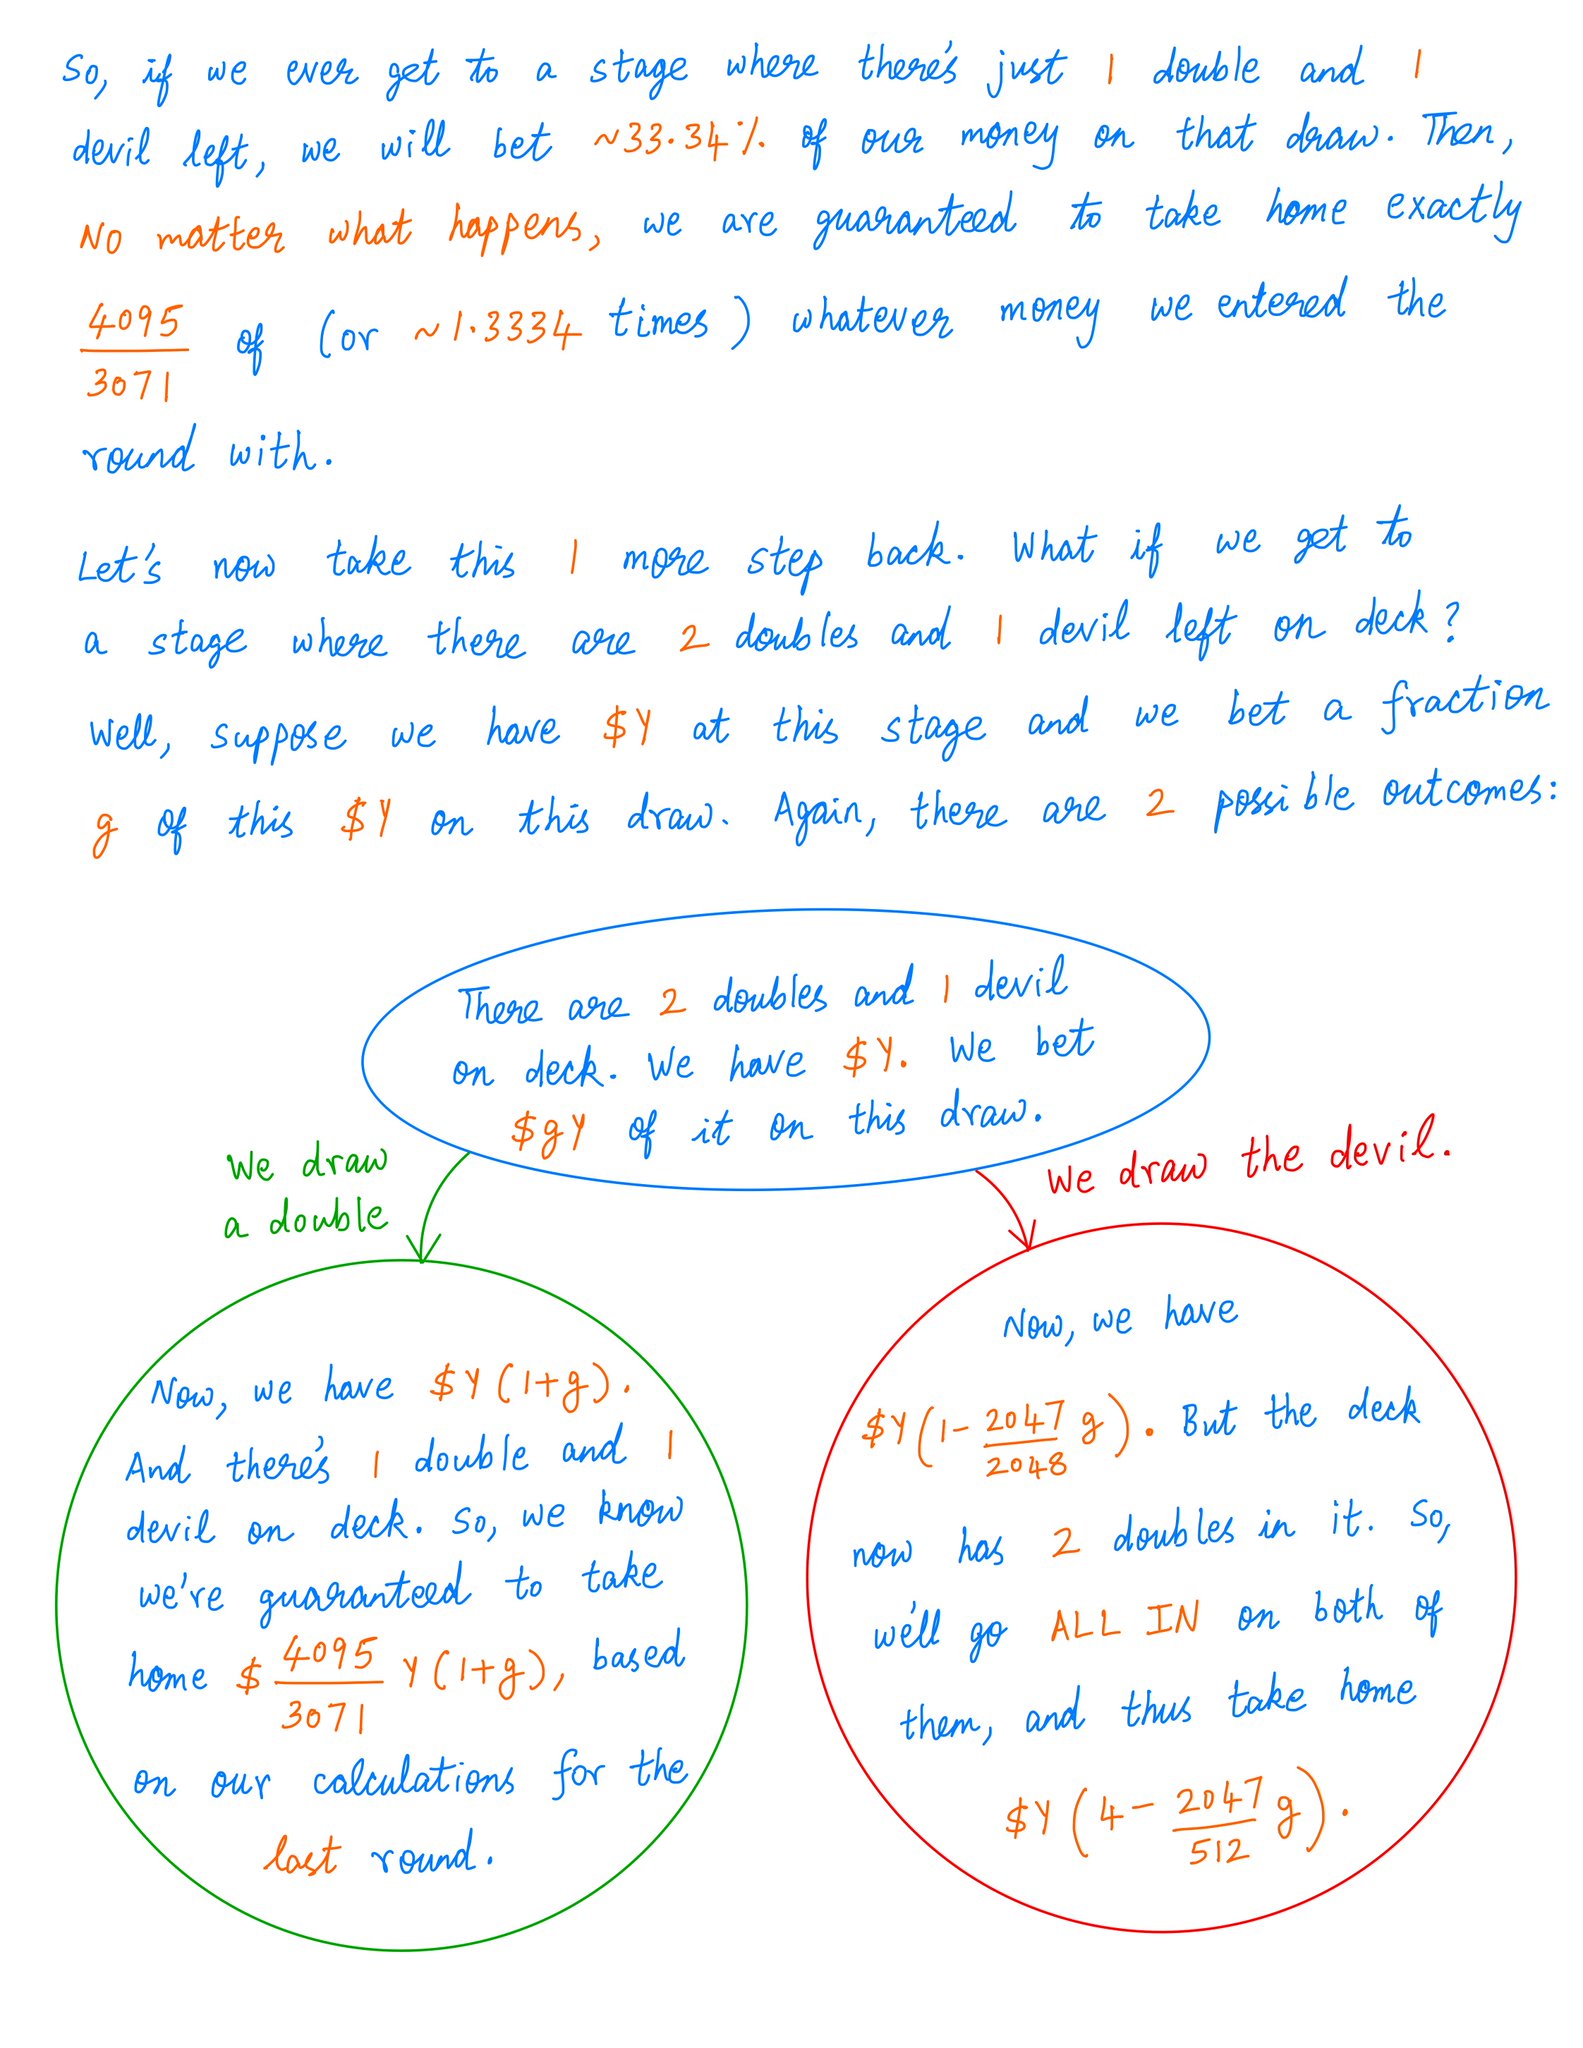 So, if we ever get to a stage where there's just 1 double and 1
devil left, we will bet ~33.34% of our money on that draw. Then,
No matter what happens, we are guaranteed to take home exactly
4095/3071 of (or ~1.3334 times) whatever money we entered the
round with.
Let's now take this 1 more step back. What if we get to
a stage where there are 2 doubles and 1 devil left on deck?
Well, suppose we have $Y at this stage and we bet a fraction
g of this $Y on this draw. Again, there are 2 possible outcomes:
There are 2 doubles and 1 devil
on deck. We have $Y. We bet
$gY of it on this draw.
We draw
a double
We draw the devil.
Now, we have $Y(1+g).
And there's 1 double and 1
devil on deck. So, we know
we're guaranteed to take
home $4095/3071 Y(1+g), based
on our calculations for the
last round.
Now, we have
$Y(1-2047/2048 g). But the deck
now has 2 doubles in it. So,
we'll go ALL IN on both of
them, and thus take home
$Y(4-2047/512 g).